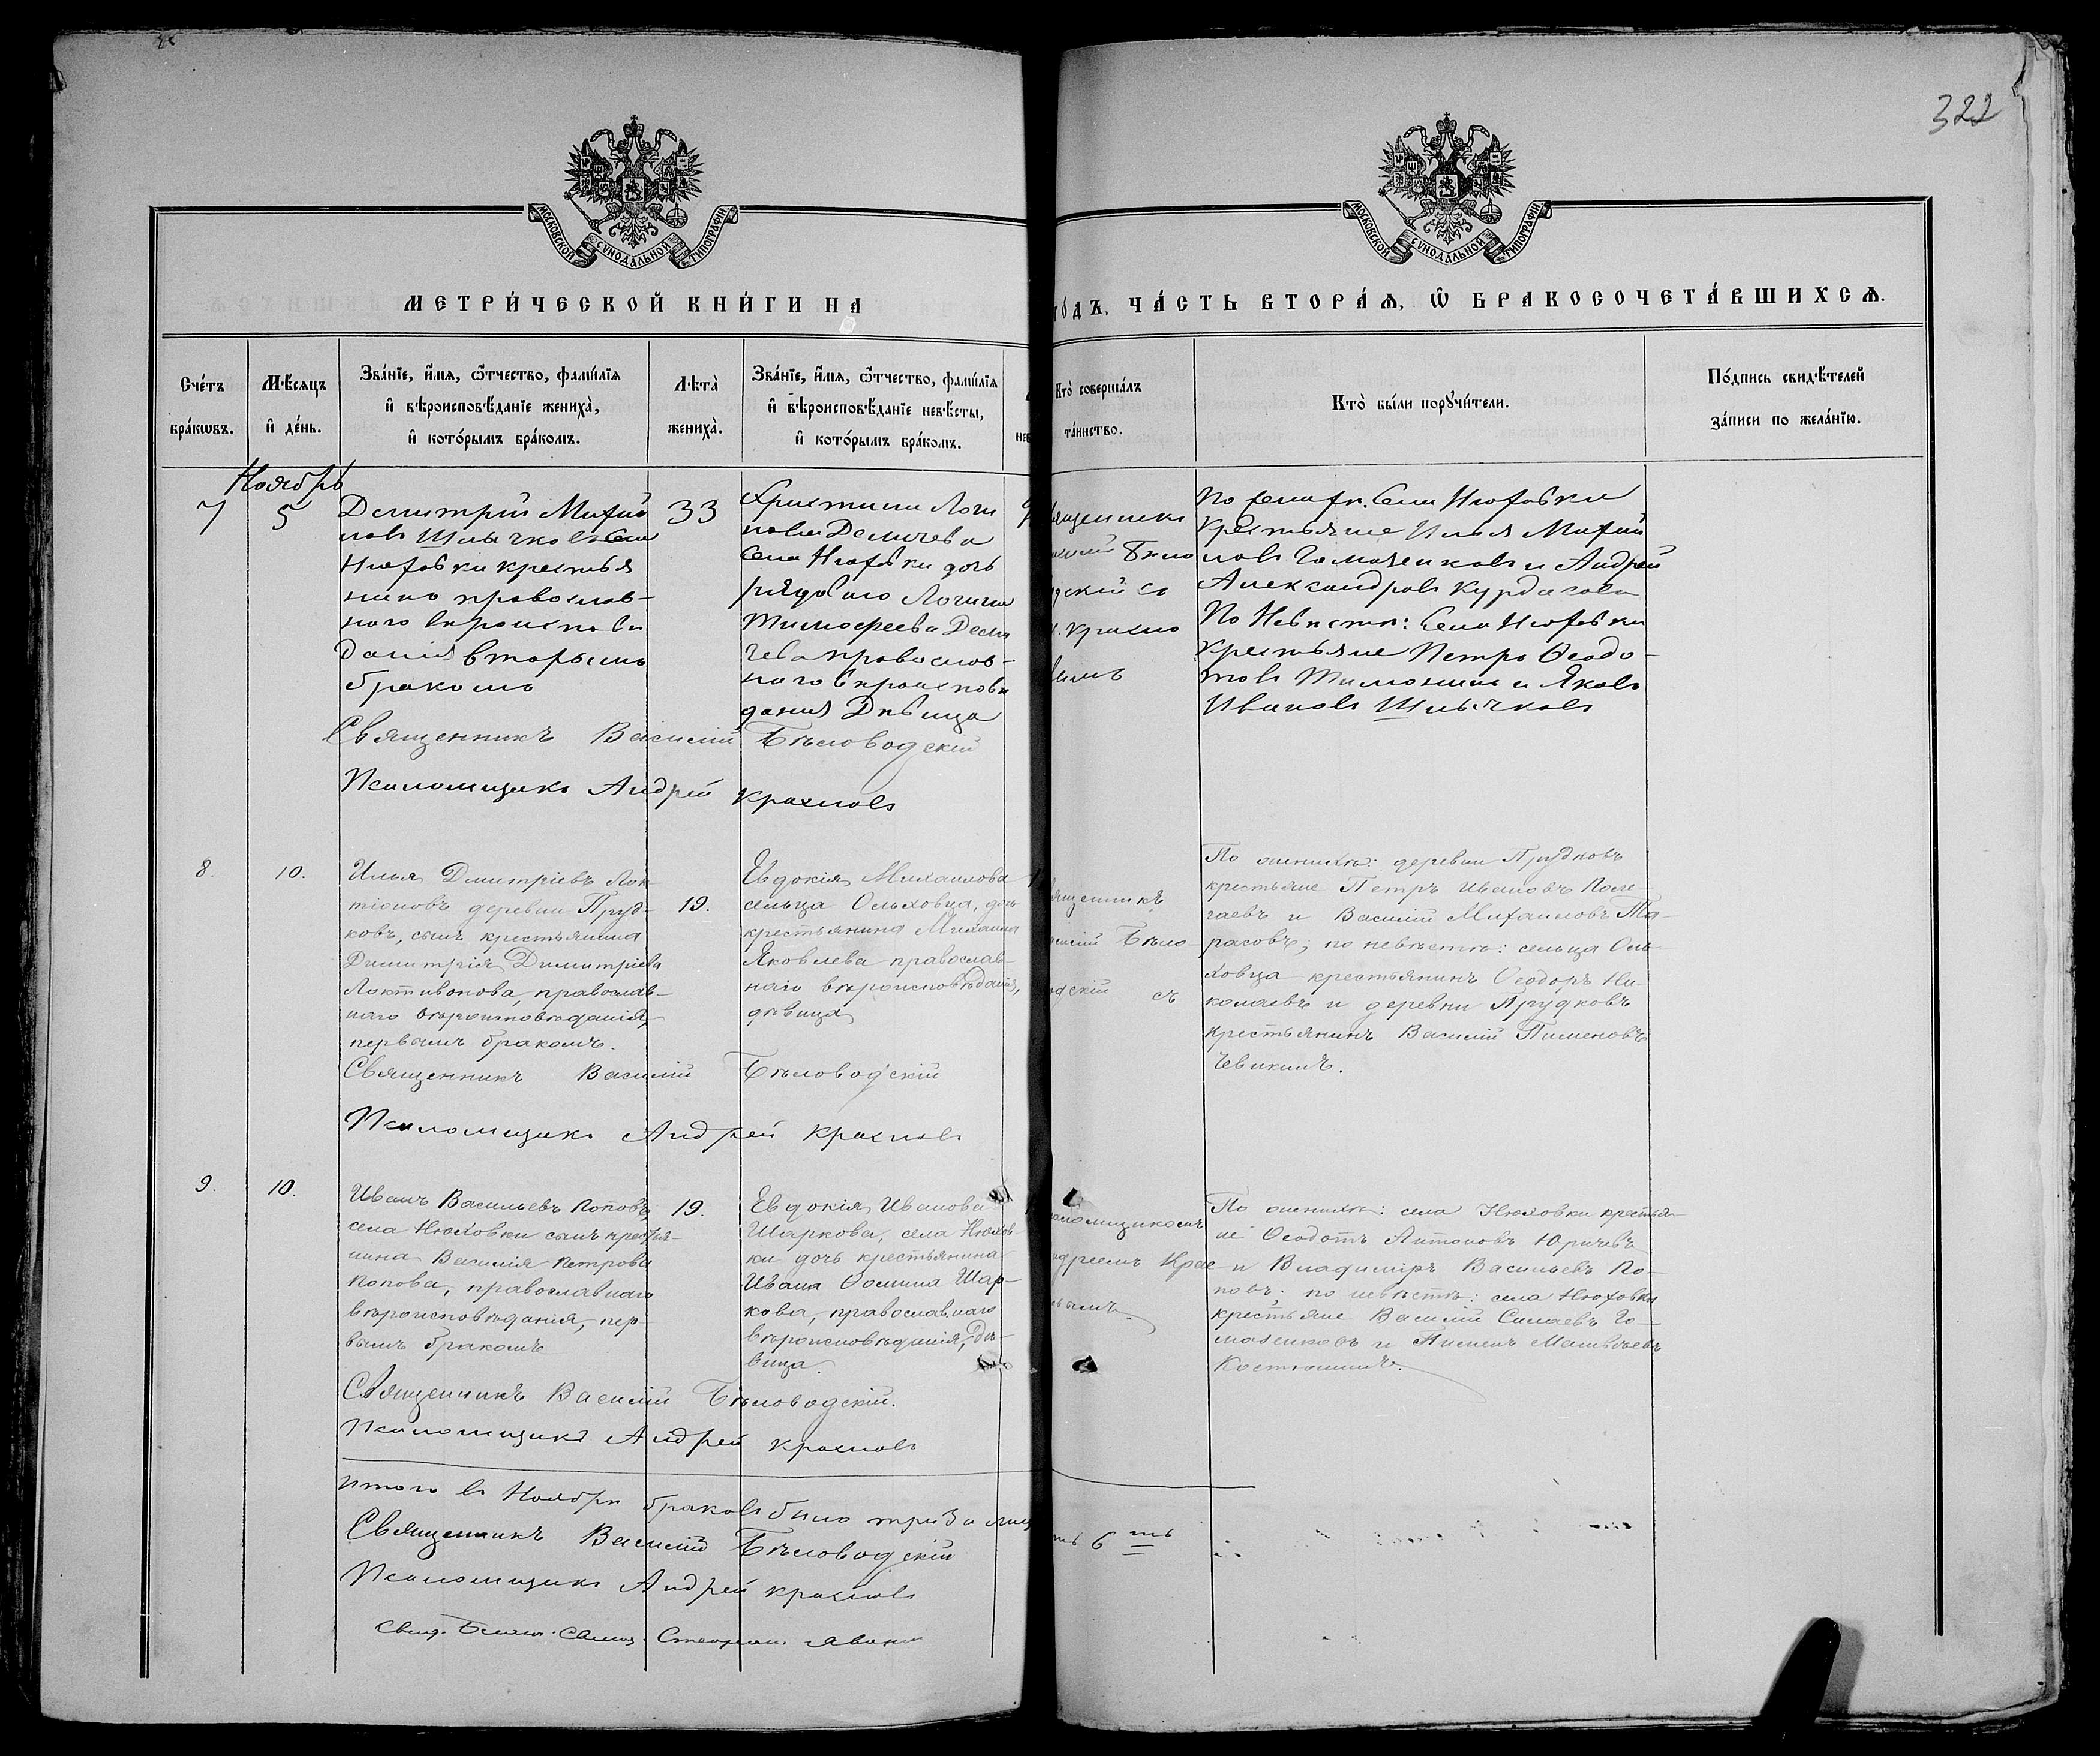 322
МОСКОВСКОЙ СУНОДАЛЬНОЙ ТИПОГРАФІИ
МОСКОВСКОЙ СУНОДАЛЬНОЙ ТИПОГРАФІИ
МЕТРИ́ЧЕСКОЙ КНИ́ГИ НА
ГО́ДЪ, ЧА́СТЬ ВТОРА́Ѧ, Ѡ БРАКОСОЧЕТА́ВШИХСѦ.
Сче́тъ
бра́кѡвъ.
Мѣ́сяцъ
и де́нь.
Зва́нїе, и́мя, ѻ́тчество, фами́лїя
и вѣроисповѣ́данїе жениха̀,
и кото́рымъ бра́комъ.
Лѣта̀
жениха̀.
Зва́нїе, и́мя, ѻ́тчество, фами́лїя
и вѣроисповѣ́данїе невѣ́сты,
и кото́рымъ бра́комъ.
Кто̀ соверша́лъ
та́инство.
Кто̀ бы́ли порꙋчи́тели.
По́дпись свидѣ́телей
за́писи по жела́нїю.
Ноябрь
7
5
Димитрій Михаи
ловъ Шлычковъ села
Нюховки крестья
нинъ православ-
наго вѣроисповѣ
данія вторымъ
бракомъ
33
Христина Логи
нова Демичева
села Нюховки дочь
рядового Логина
Тимофеева Деми
чева православ-
наго вѣроисповѣ
данія Дѣвица
ященникъ
Бѣло
дскій съ
Красно
вымъ
По жениху: села Нюховки
крестьяне Илья Михаи
ловъ Гомазенковъ и Андрей
Александровъ Курдасовъ
По Невѣстѣ: села Нюховки
крестьяне Петръ Ѳеодо-
товъ Тимошинъ и Яковъ
Ивановъ Шлычковъ
Священникъ Василій Бѣловодскій
Псаломщикъ Андрей Красновъ
8.
10.
Илья Димитріевъ Лок-
тіоновъ деревни Пруд-
ковъ, сынъ крестьянина
Димитрія Димитріева
Локтивонова, православ-
наго вѣроисповѣданія,
первымъ бракомъ.
19.
Евдокія Михаилова
сельца Ольховца, дочь
крестьянина Михаила
Яковлева православ-
наго вѣроисповѣданія,
дѣвица
ященникъ
силій Бѣло-
одскій съ
По женихѣ: деревни Прудковъ
крестьяне Петръ Ивановъ Поле-
гаевъ и Василій Михаиловъ Та-
расовъ; по невѣстѣ: сельца Оль-
ховца крестьянинъ Ѳеодоръ Ни-
колаевъ и деревни Прудковъ
крестьянинъ Василій Пименовъ
Чевикинъ.
Священникъ Василій Бѣловодскій
Псаломщикъ Андрей Красновъ
9.
10.
Иванъ Васильевъ Поповъ,
села Нюховки сынъ крестья-
нина Василія Петрова
Попова, православнаго
вѣроисповѣданія, пер-
вымъ бракомъ
19.
Евдокія Иванова
Шаркова, села Нюхов-
ки дочь крестьянина
Ивана Ѳомина Шар-
кова, православнаго
вѣроисповѣданія, дѣ-
вица.
аломщикомъ
ндреемъ Крас-
нымъ
По женихѣ: села Нюховки крестья-
не Ѳеодотъ Антоновъ Юричевъ
и Владиміръ Васильевъ По-
повъ; по невѣстѣ: села Нюховки
крестьяне Василій Силаевъ Го-
мазенковъ и Пименъ Матвѣевъ
Костюшинъ.
Священникъ Василій Бѣловодскій.
Псаломщикъ Андрей Красновъ
Итого въ Ноябрѣ браковъ было три 3 а лицъ
6 ть
Священникъ Василій Бѣловодскій
Псаломщикъ Андрей Красновъ